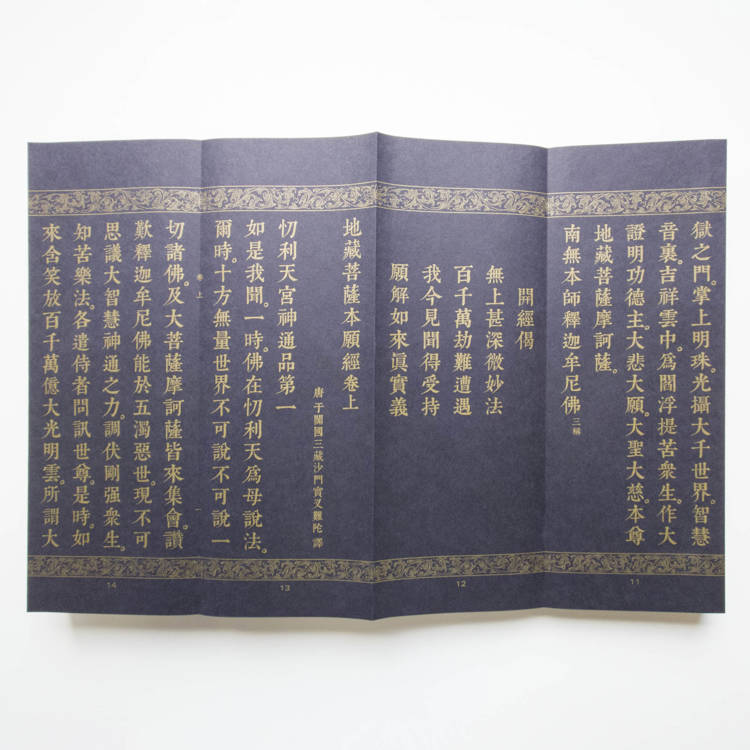 獄之門。掌上明珠。光攝大千世界。智慧
音裏。吉祥雲中。爲閻浮提苦衆生。作大
證明功德主。大悲大願。大聖大慈。本尊
地藏菩薩摩訶薩。
南無本師釋迦牟尼佛 三稱
11
開經偈
無上甚深微妙法
百千萬劫難遭遇
我今見聞得受持
願解如來眞實義
12
地藏菩薩本願經卷上
唐于闐國三藏沙門實叉難陀 譯
忉利天宮神通品第一
如是我聞。一時。佛在忉利天爲母說法。
爾時。十方無量世界不可說不可說一
13
卷上
一
切諸佛。及大菩薩摩訶薩皆來集會。讚
歎釋迦牟尼佛能於五濁惡世。現不可
思議大智慧神通之力。調伏剛强衆生。
知苦樂法。各遣侍者問訊世尊。是時。如
來含笑放百千萬億大光明雲。所謂大
14